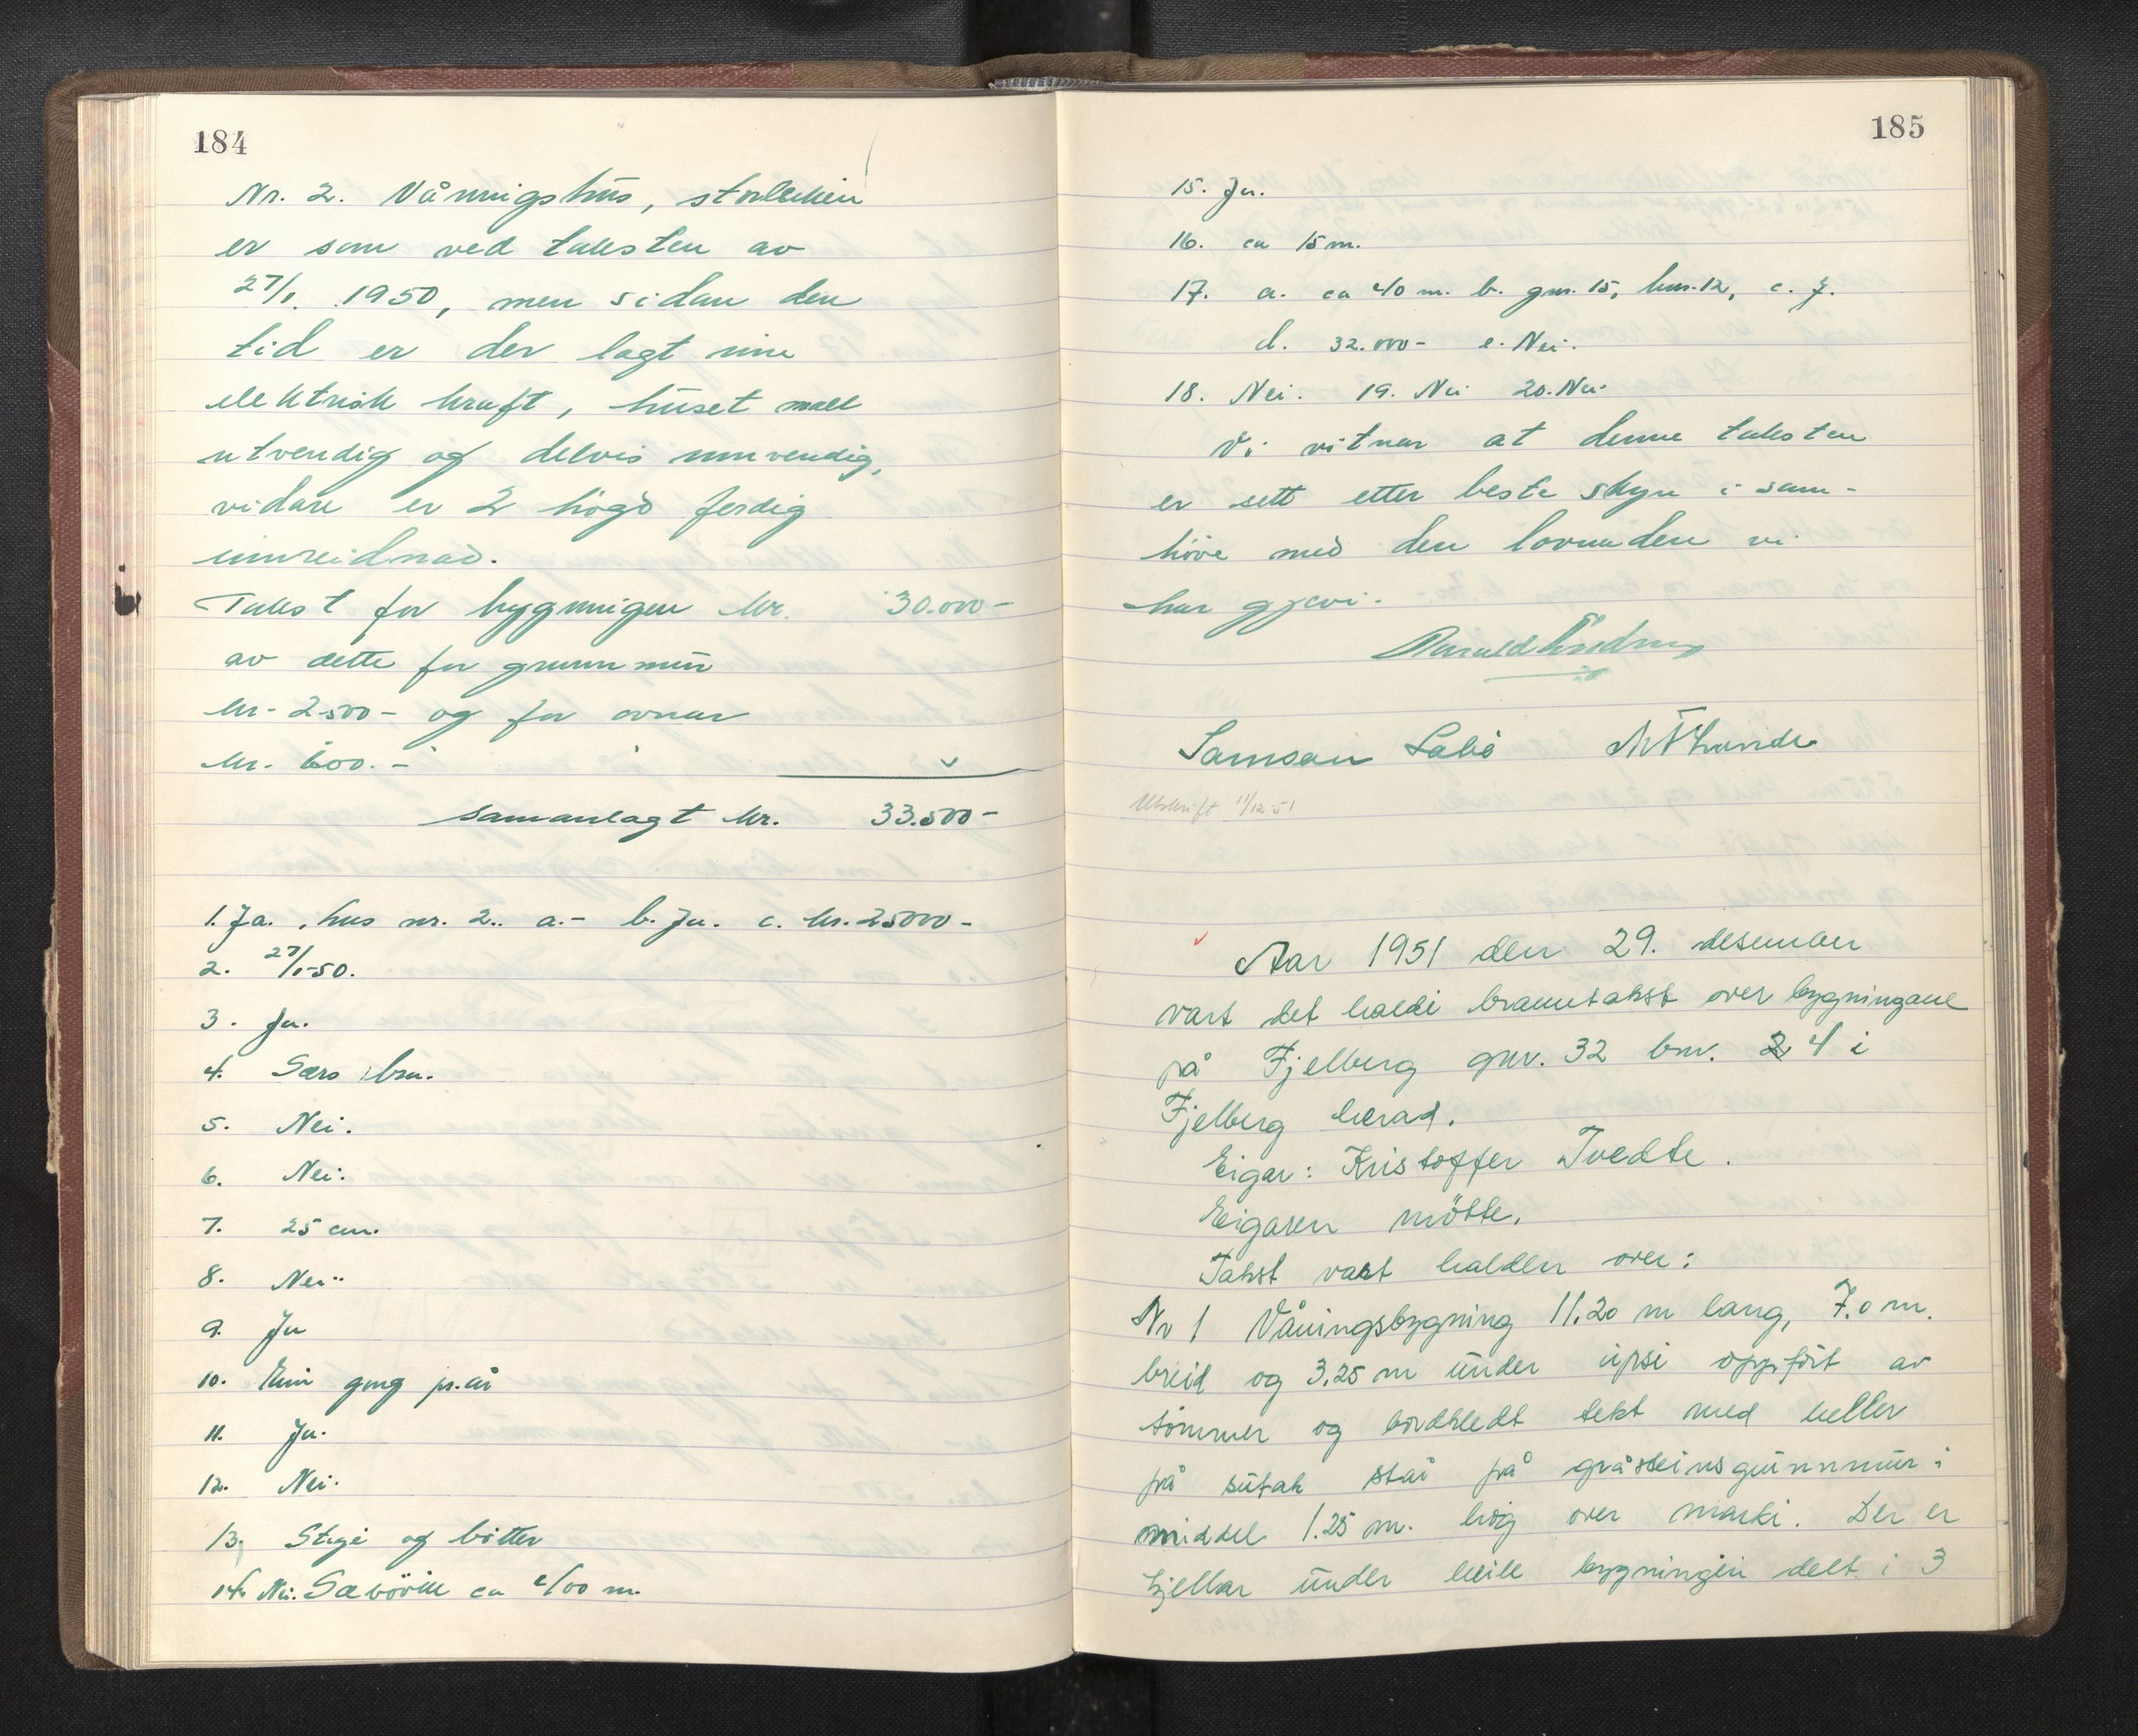 184
Nr. 2. Vånnigshus, storleiken
er som ved taksten av
27/1. 1950, men sidan den
tid er der lagt inn
elektrisk kraft, huset mall
utvendig og delvis innvendig,
vidare er 2 høgd ferdig
innreidnad.
Takst for bygningen kr. 30.000-
av dette for grunnmur
kr. 2500- og for ovnar
kr. 600.-
samanlagt kr. 33.500-
1. Ja. hus nr. 2.. a.- b. Ja. c. kr. 25000-
2. 27/1-50.
3. Ja.
4. Særs bra.
5. Nei.
6. Nei.
7. 25 cm.
8. Nei.
9. Ja
10. Ein gong pr. år
11. Ja.
12. Nei.
13. Stige og bøtter
14. Nei. Sæbövik ca 400 m.
185
15. Ja.
16. ca 15 m.
17. a. ca 40 m. b. gnr. 15, bnr. 12, c. J.
d. 32.000- e. Nei.
18. Nei. 19. Nei 20. Nei.
Vi vitnar at denne taksten
er sett etter beste skyn i sam-
høve med den lovnaden vi
har gjevi.
Samson Sabø
Utskrift 11/12-51
Aar 1951 den 29. desember
vart det haldi branntakst over bygningane
på Fjelberg gnr. 32 bnr. 4 i
Fjelberg herad.
Eigar: Kristoffer Tvedte.
Eigaren møtte.
Takst vart halden over:
Nr 1 Våningsbygning 11.20 m lang, 7.0 m.
breid og 3.25 m under upsi oppført av
tømmer og bordkledt tekt med heller
på sutak står på gråsteinsgrunnmur i
middel 1.25 m. høg over marki. Der er
kjellar under heile bygningen delt i 3